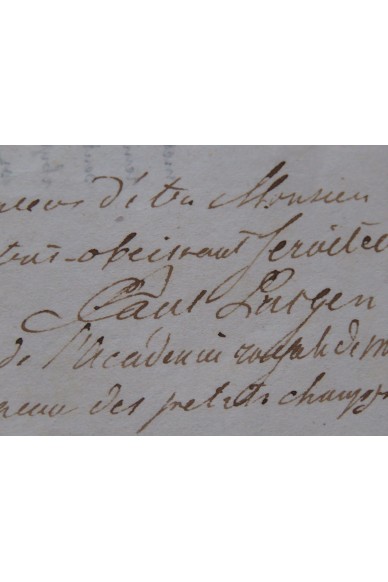 d'être Monsieur
très-obeissant Servite
Paul
de l'Academie royale de m
neuve des petits champs